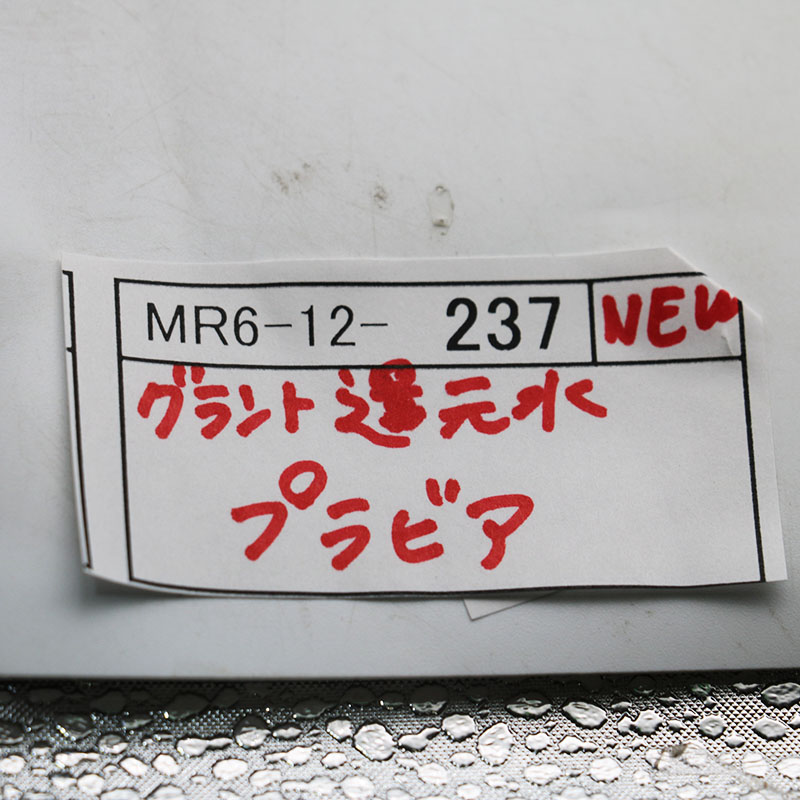 MR6-12- 237 NEW
グラント還元水
プラビア